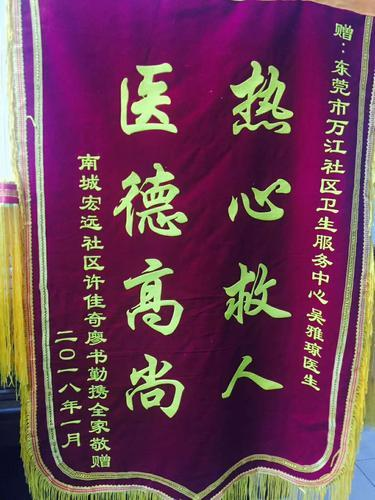 赠：东莞市万江社区卫生服务中心吴雅琼医生
热心救人
医德高尚
南城宏远社区许佳奇廖书勤携全家敬赠
二〇一八年一月